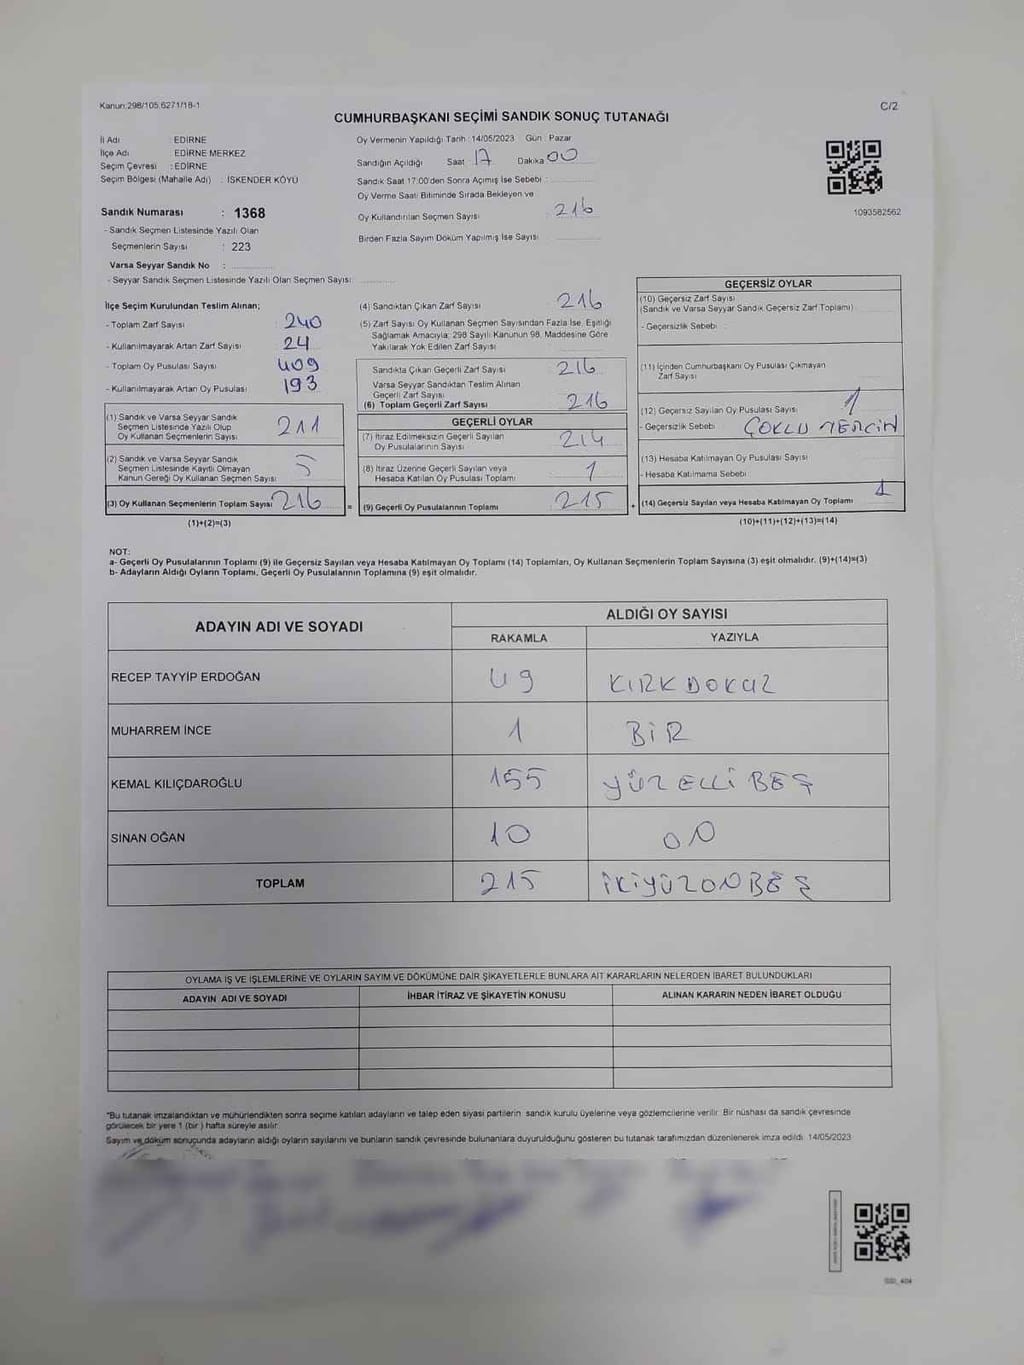 Kanun:298/105,6271/18-1
C/2
CUMHURBAŞKANI SEÇİMİ SANDIK SONUÇ TUTANAĞI
İl Adı EDİRNE
İlçe Adı EDİRNE MERKEZ
Seçim Çevresi : EDİRNE
Seçim Bölgesi (Mahalle Adı) : İSKENDER KÖYÜ
Sandık Numarası : 1368
- Sandık Seçmen Listesinde Yazılı Olan
Seçmenlerin Sayısı : 223
Varsa Seyyar Sandık No :
- Seyyar Sandık Seçmen Listesinde Yazılı Olan Seçmen Sayısı:
Oy Vermenin Yapıldığı Tarih :14/05/2023 Gün : Pazar
Sandığın Açıldığı Saat 17 Dakika 00
Sandık Saat 17:00'den Sonra Açımış İse Sebebi :
Oy Verme Saati Bitiminde Sırada Bekleyen ve
Oy Kullandırılan Seçmen Sayısı : 216
Birden Fazla Sayım Döküm Yapılmış İse Sayısı :
1093582562
İlçe Seçim Kurulundan Teslim Alınan;
- Toplam Zarf Sayısı 240
- Kullanılmayarak Artan Zarf Sayısı 24
- Toplam Oy Pusulası Sayısı 409
- Kullanılmayarak Artan Oy Pusulası 193
(1) Sandık ve Varsa Seyyar Sandık
Seçmen Listesinde Yazılı Olup
Oy Kullanan Seçmenlerin Sayısı : 211
(2) Sandık ve Varsa Seyyar Sandık
Seçmen Listesinde Kayıtlı Olmayan
Kanun Gereği Oy Kullanan Seçmen Sayısı : 5
(3) Oy Kullanan Seçmenlerin Toplam Sayısı 216
(1)+(2)=(3)
(4) Sandıktan Çıkan Zarf Sayısı 216
(5) Zarf Sayısı Oy Kullanan Seçmen Sayısından Fazla İse, Eşitliği
Sağlamak Amacıyla; 298 Sayılı Kanunun 98. Maddesine Göre
Yakılarak Yok Edilen Zarf Sayısı
Sandıkta Çıkan Geçerli Zarf Sayısı 216
Varsa Seyyar Sandıktan Teslim Alınan
Geçerli Zarf Sayısı
(6) Toplam Geçerli Zarf Sayısı 216
GEÇERLİ OYLAR
(7) İtiraz Edilmeksizin Geçerli Sayılan
Oy Pusulalarının Sayısı 214
(8) İtiraz Üzerine Geçerli Sayılan veya
Hesaba Katılan Oy Pusulası Toplamı 1
= (9) Geçerli Oy Pusulalarının Toplamı 215
GEÇERSİZ OYLAR
(10) Geçersiz Zarf Sayısı
(Sandık ve Varsa Seyyar Sandık Geçersiz Zarf Toplamı)
- Geçersizlik Sebebi
(11) İçinden Cumhurbaşkanı Oy Pusulası Çıkmayan
Zarf Sayısı
(12) Geçersiz Sayılan Oy Pusulası Sayısı 1
- Geçersizlik Sebebi ÇOKLU TERCİH
(13) Hesaba Katılmayan Oy Pusulası Sayısı
- Hesaba Katılmama Sebebi
+ (14) Geçersiz Sayılan veya Hesaba Katılmayan Oy Toplamı 1
(10)+(11)+(12)+(13)=(14)
NOT:
a- Geçerli Oy Pusulalarının Toplamı (9) ile Geçersiz Sayılan veya Hesaba Katılmayan Oy Toplamı (14) Toplamları, Oy Kullanan Seçmenlerin Toplam Sayısına (3) eşit olmalıdır. (9)+(14)=(3)
b- Adayların Aldığı Oyların Toplamı, Geçerli Oy Pusulalarının Toplamına (9) eşit olmalıdır.
ADAYIN ADI VE SOYADI ALDIĞI OY SAYISI
RAKAMLA YAZIYLA
RECEP TAYYİP ERDOĞAN 49 KIRKDOKUZ
MUHARREM İNCE 1 BİR
KEMAL KILIÇDAROĞLU 155 YÜZELLİBEŞ
SİNAN OĞAN 10 ON
TOPLAM 215 İKİYÜZONBEŞ
OYLAMA İŞ VE İŞLEMLERİNE VE OYLARIN SAYIM VE DÖKÜMÜNE DAİR ŞİKAYETLERLE BUNLARA AİT KARARLARIN NELERDEN İBARET BULUNDUKLARI
ADAYIN ADI VE SOYADI İHBAR İTİRAZ VE ŞİKAYETİN KONUSU ALINAN KARARIN NEDEN İBARET OLDUĞU
*Bu tutanak imzalandıktan ve mühürlendikten sonra seçime katılan adayların ve talep eden siyasi partilerin sandık kurulu üyelerine veya gözlemcilerine verilir. Bir nüshası da sandık çevresinde
görülecek bir yere 1 (bir ) hafta süreyle asılır.
Sayım ve döküm sonuçunda adayların aldığı oyların sayılarını ve bunların sandık çevresinde bulunanlara duyurulduğunu gösteren bu tutanak tarafımızdan düzenlenerek imza edildi. 14/05/2023